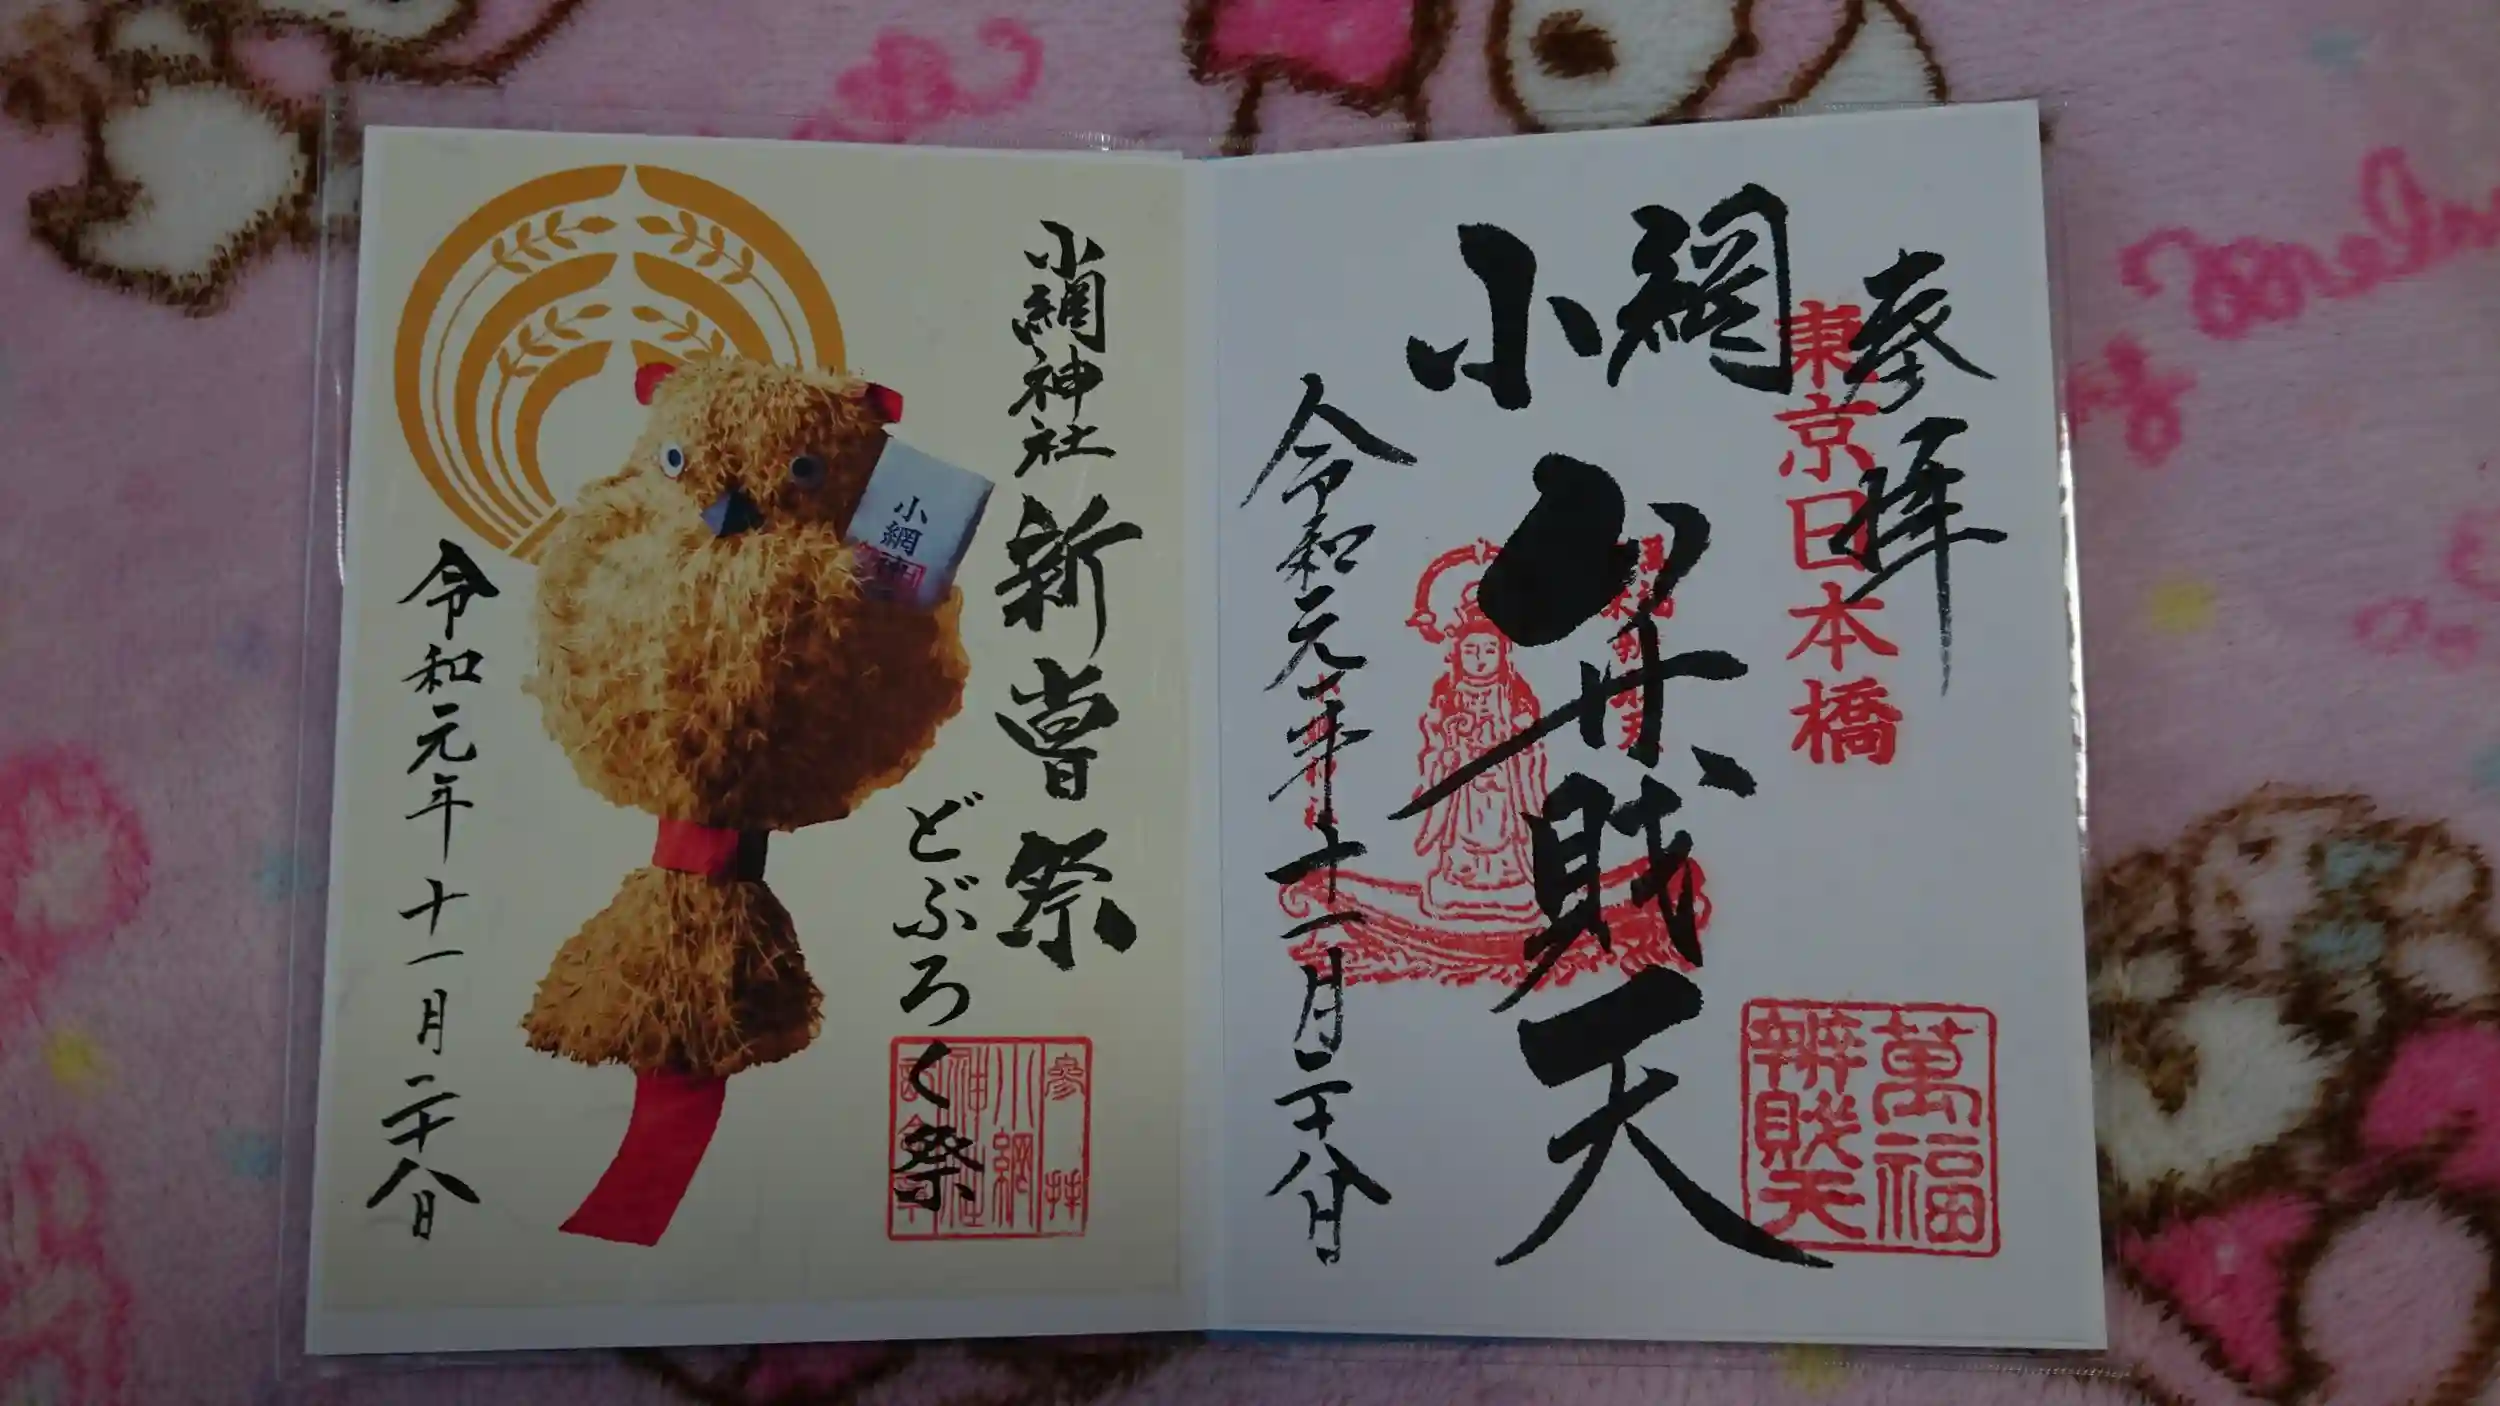 奉拝
東京日本橋
小網
弁財天
萬福
辨財天
令和元年十一月二十八日
小網神社
新嘗祭
どぶろく祭
参拝
小網
神社
小網
令和元年十一月二十八日